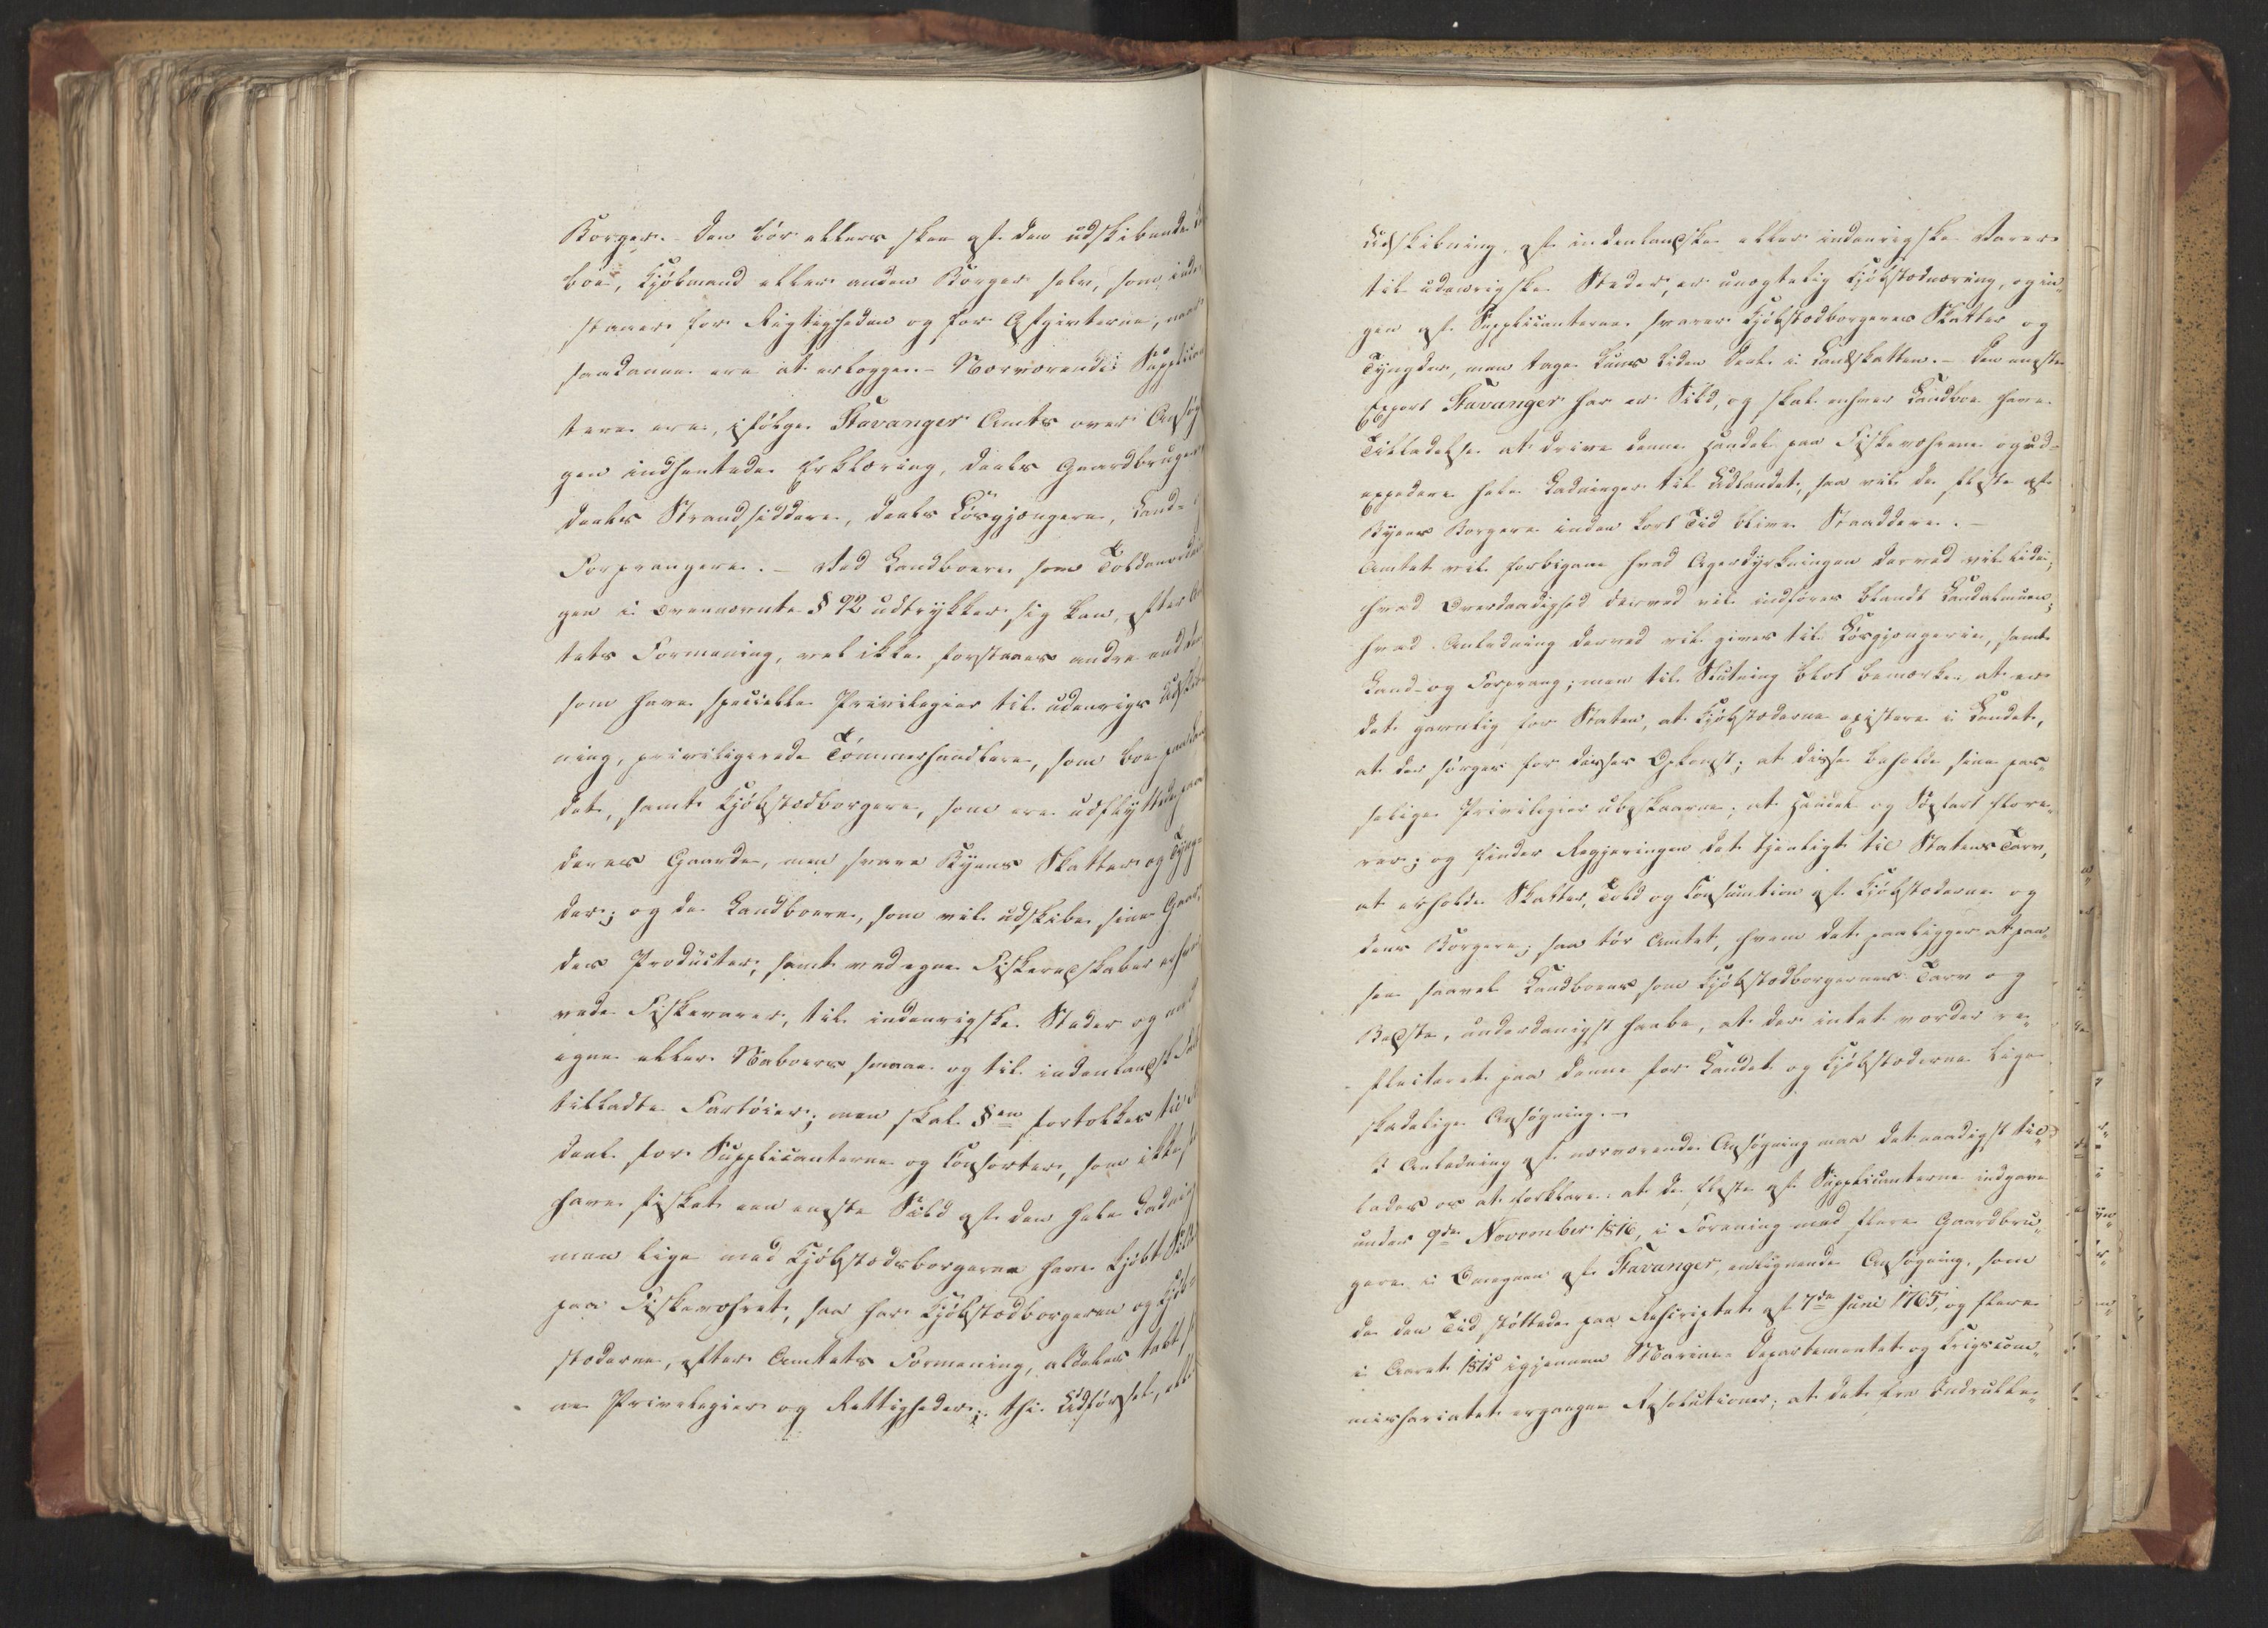 Borger. - Den bør ellers skee af den udskibende
boe, Kjøbmand eller anden Borger selv, som inde-
staaer for Rigtigheden og for Afgivterne, naar
saadanne ere at erlægge. - Nærværende Supplican
tere ere, ifølge Stavanger Amts over Ansøg
gen indhentede Erklæring, deels Gaardbrugere
deels Strandsiddere, deels Løsgjængere, Land- 
Forprangere. - Ved Landboere som Toldanord
gen i ovennævnte § 92 udtrykker sig kan, efter
tets Formening, vel ikke forstaaes andre end
som have specielle Privilegier til udenrigs Udskib
ning, priviligerede Tømmerhandlere, som boe paa Lan
det, samt Kjøbstædborgere, som ere udflyttede paa
deres Gaarde, men svare Byens Skatter og Tyng-
der; og de Landboere, som vil udskibe sine Gaar-
des Producter, samt ved egne Fiskeredskaber erhver
vede Fiskevarer, til indenrigske Steder og med
egne eller Naboers smaae og til indenlandsk
tilladte Fartøier; men skal §en fortolkes til
deel for Supplicanterne og Consorter, som ikke
have fisket een eneste Sild af den hele Ladning
men lige med Kjøbstædsborgerne have kjøbt Sild
paa Fiskeværet, saa har Kjøbstædborgeren og Kjøb-
stæderne, efter Amtets Formening, aldeles tabt
ne Privilegier og Rettigheder; thi Udførsel, eller
Udskibning af indenlandske eller indenrigske Varer
til udenrigske Steder, er unægtelig Kjøbstædnæring, og in-
gen af Supplicanterne svarer Kjøbstædborgernes Skatter og
Tyngder, men tage kuns liden Deel i Landskatten. - Den eneste
Export Stavanger har er Sild, og skal enhver Landboe have
Tilladelse at drive denne Handel paa Fiskeværene og ud-
expedere hele Ladninger til Udlandet, saa vil de fleste af
Byens Borgere inden kort Tid blive Staaddere. -
Amtet vil forbigaae hvad Agerdyrkningen derved vil lide;
hvad Overdaadighed derved vil indføres blandt Landalmuen;
hvad Anledning derved vil gives til Løsgjængerie, samt
Land- og Forprang; men til Slutning blot bemærke, at er
det gavnlig for Staten, at Kjøbstæderne existere i Landet,
at der sørges for disses Opkomst; at disse beholde sine gan-
selige Privilegier ubeskaarne; at Handel og Søefart flore-
rer; og finder Regjeringen det tjenligt til Statens Tarv,
at erholde Skatter, Told og Consumtion af Kjøbstæderne og
dens Borgere; saa tør Amtet, hvem det paaligger at paa-
see saavel Landboens som Kjøbstædborgernes Tarv og
Bedste, underdanigst haabe, at der intet vorder re-
flecteret paa denne for Landet og Kjøbstæderne lige
skadelige Ansøgning. -
I Anledning af nærværende Ansøgning maa det naadigst til-
lades os at forklare: at de fleste af Supplicanterne indgave
under 9de November 1816, i Forening med flere Gaardbru-
gere i Omegnen af Stavanger, enlignende Ansøgning, som
de den Tid støttede paa Rescriptet af 7de Juni 1765, og flere
i Aaret 1815 igjennem Marine-Departementet og Krigscom-
missariatet ergangne Resolutioner; at det fra Indrulle-